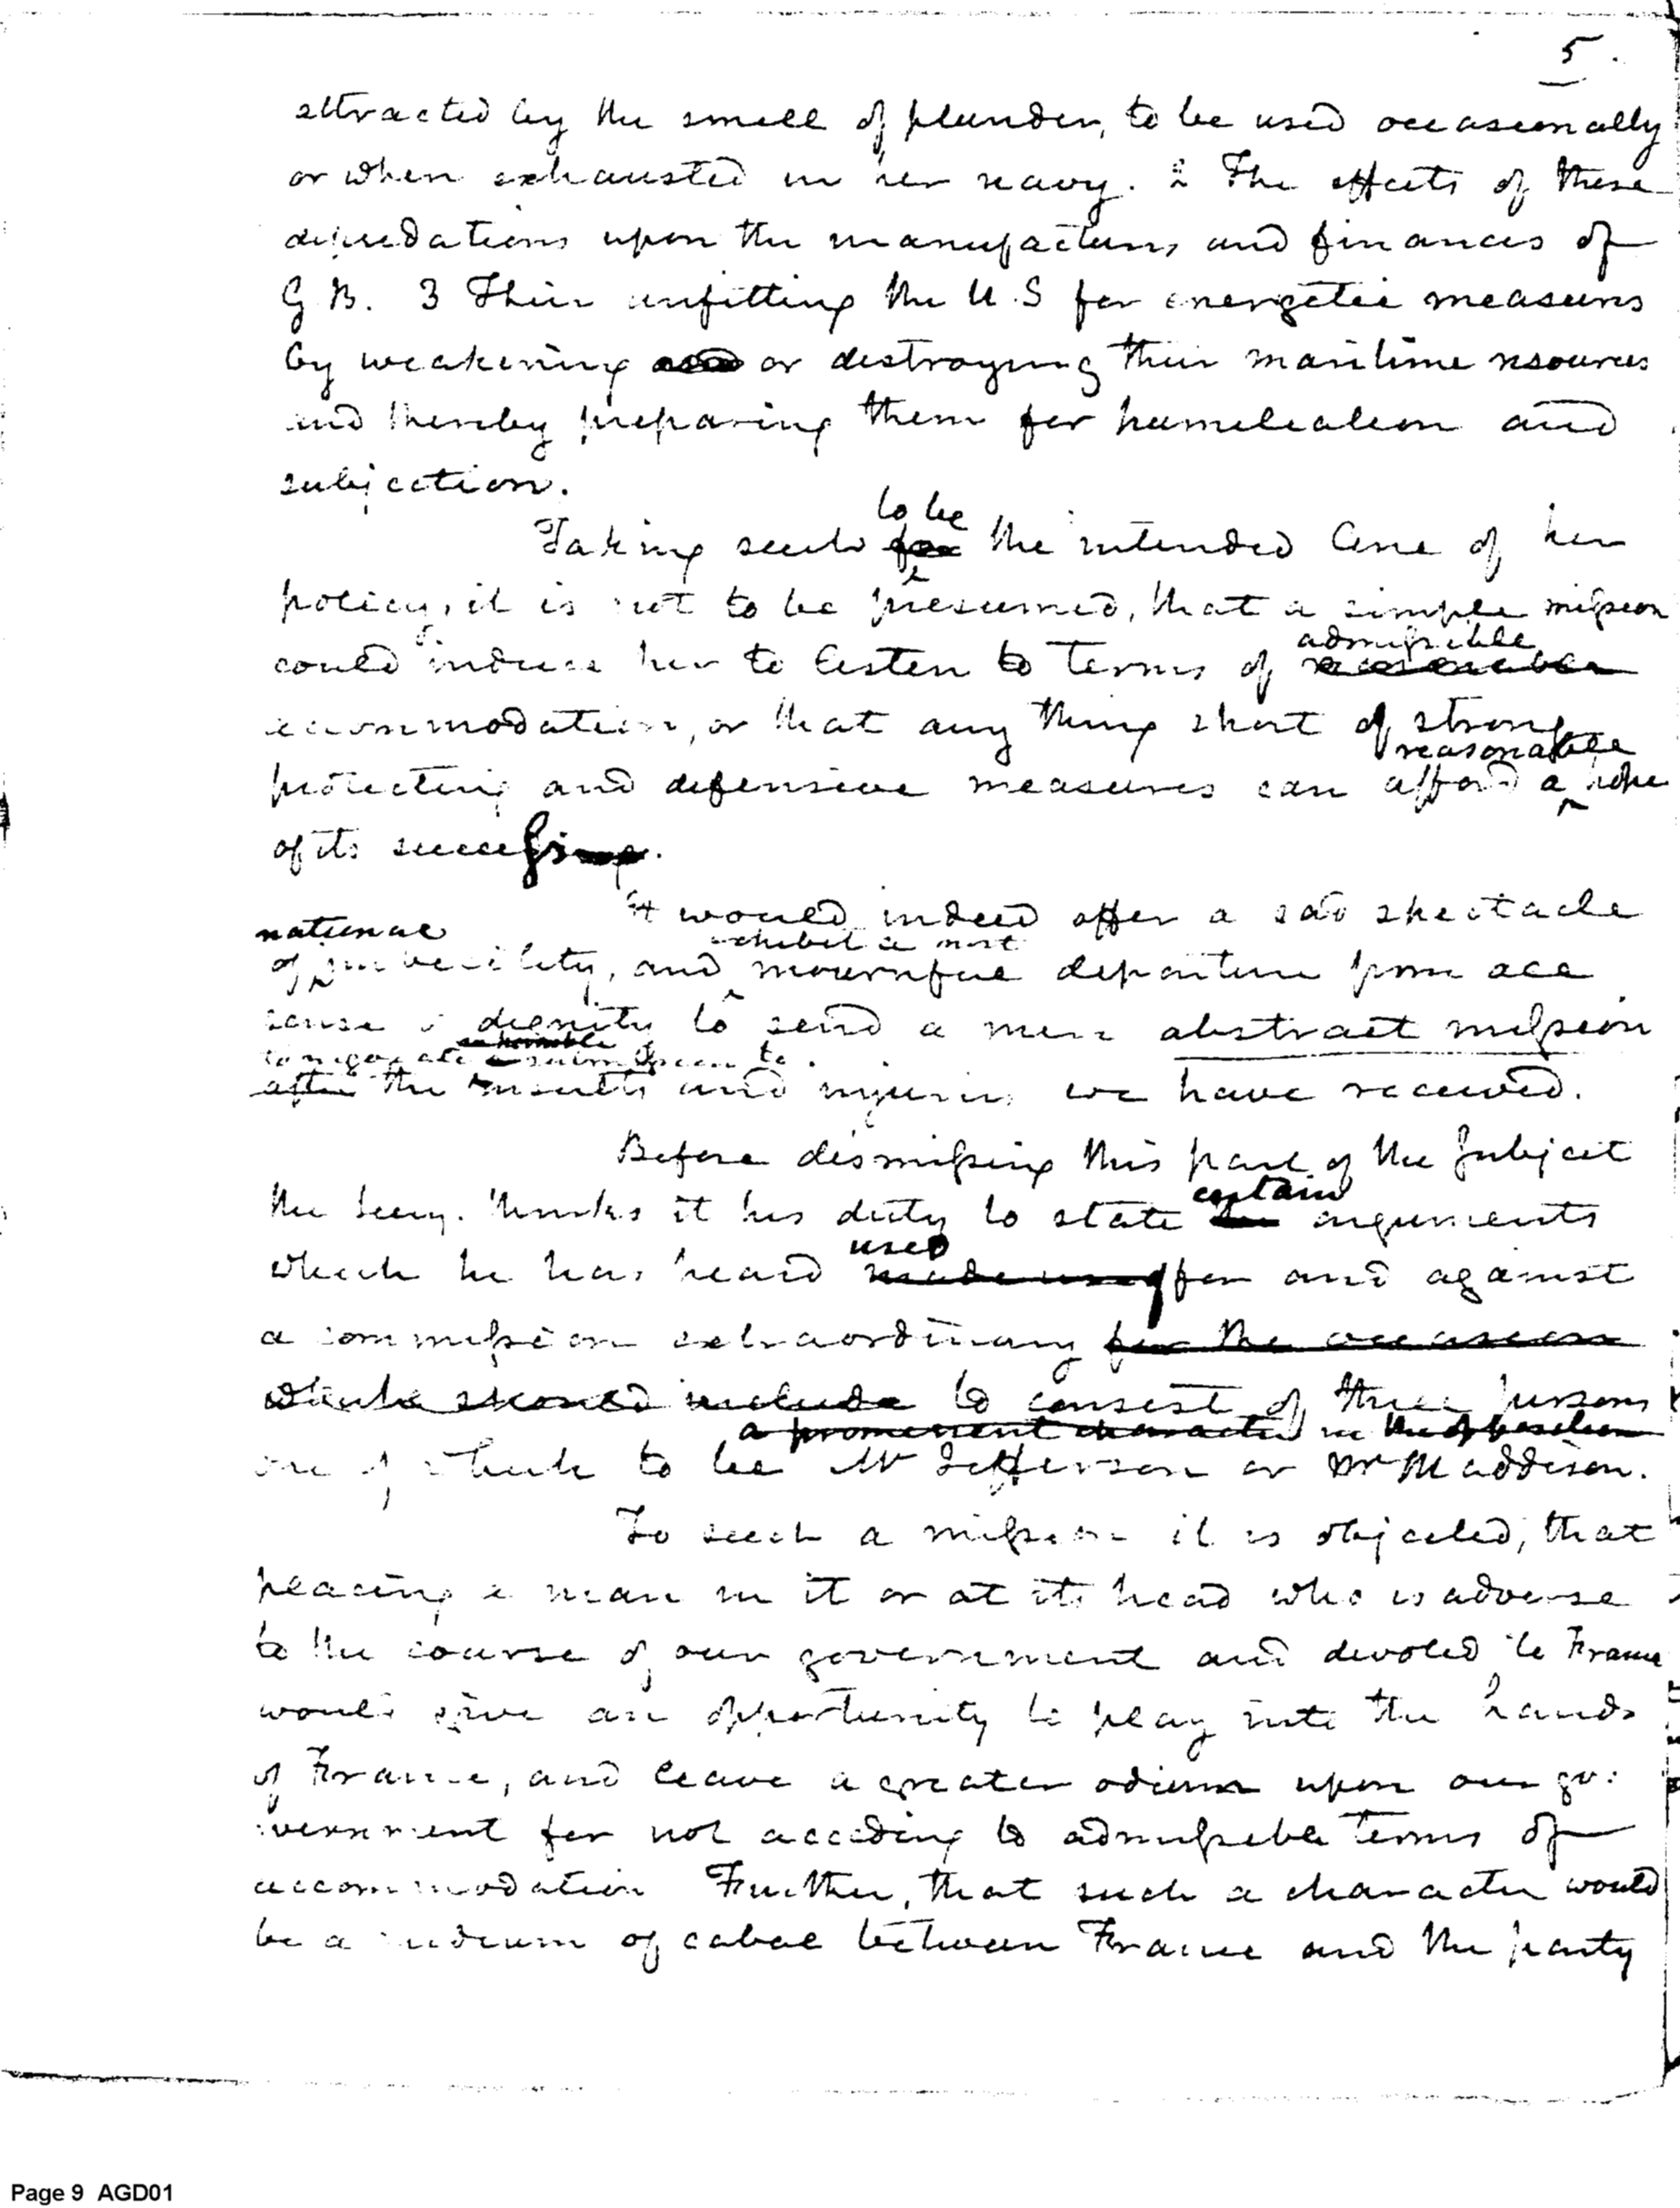 5.
attracted by the smell of plunder, to be used occasionally
or when exhausted in her navy. 2 The effects of these
depredations upon the manufactures and finances of
G B. 3 Their unfitting the U. S for energetic measures
by weakening or destroying their maritime resources
and thereby preparing them for humiliation and
subjection.
to be
Taking such for the intended line of her
policy, it is not to be presumed, that a simple mission
could induce her to listen to terms of
admissible
reasonable
accommodation, or that any thing short of strong
reasonable
protecting and defensive measures can afford a hope
of its success.
It would indeed offer a sad spectacle
national
exhibit a most
of imbecility, and mournful departure from all
sense of dignity to send a mere abstract mission
to negociate a submission to
after the insults and injuries we have received.
Before dismissing this part of the subject
certain
the Secy. thinks it his duty to state the arguments
used
which he has heard made use of for and against
a commission extraordinary for the occasion
which should include to consist of three persons
a prominent character in the opposition
one of which to be Mr Jefferson or Mr Maddison.
To such a mission it is objected, that
placing a man in it or at its head who is adverse
to the course of our government and devoted to France
would give an opportunity to play into the hands
of France, and leave a greater odium upon our go:
:vernment for not acceding to admissible terms of
accommodation Further, that such a character would
be a medium of cabal between France and the party
Page 9 AGD01